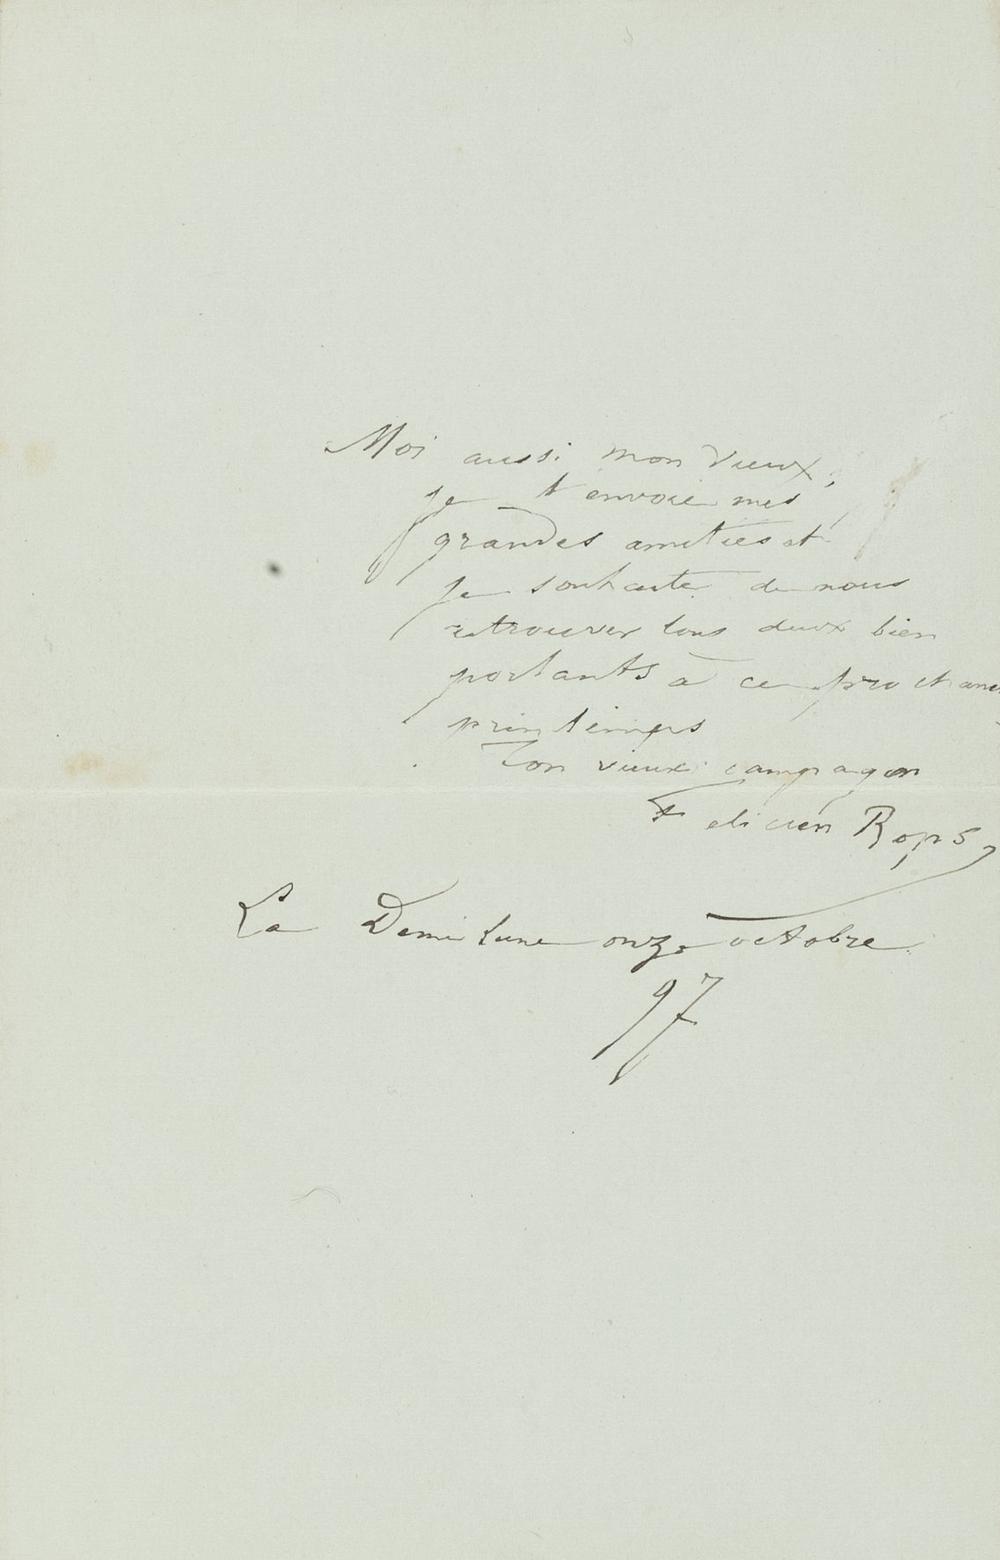 Moi aussi mon vieux,
je t'envoie mes
grandes amitiés et
je souhaite de nous
retrouver tous deux bien
portants à ce prochain
printemps
Ton vieux compagnon
Félicien Rops
La Demi Lune onze octobre
97